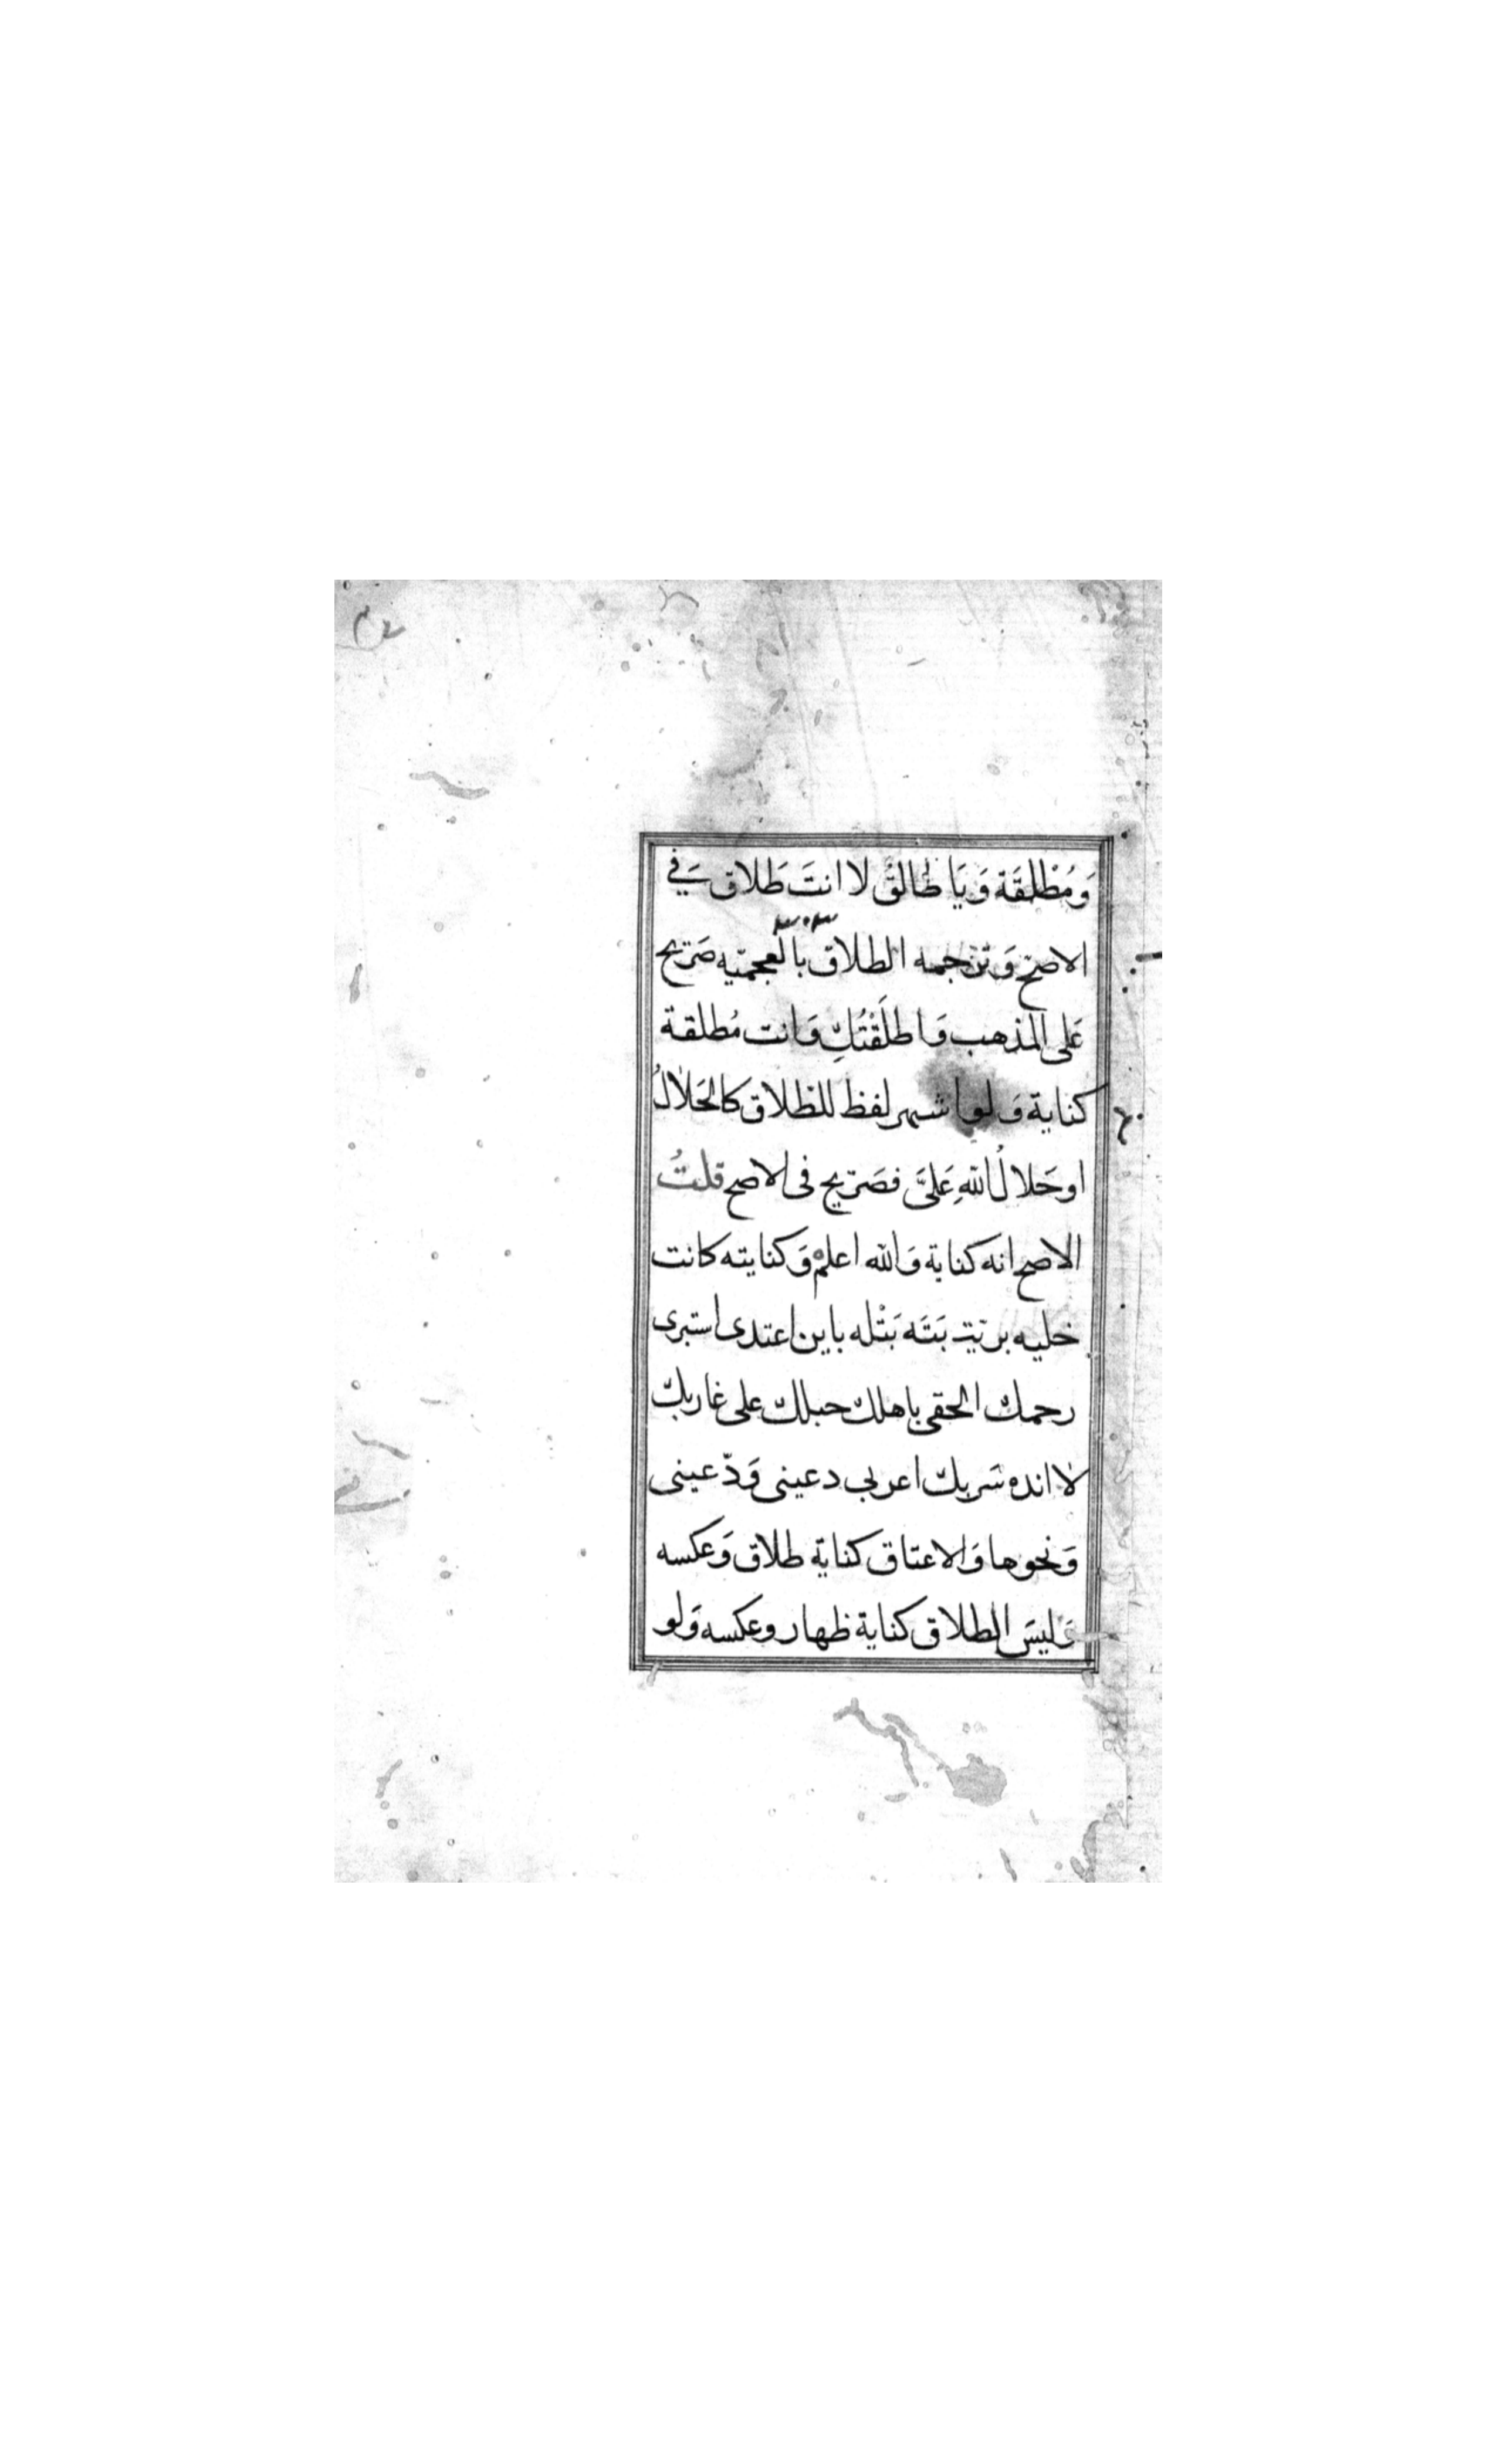 وَمُطْلقَة وَيَا طالقُ لا انتَ طَلاق في
الاصح وَترجمه الطلاق بالعجميّه صَريح
عَلى المذهب وَاطلَقْتُكِ وَانت مُطلقة
كناية وَلو اشهر لفظ للطلاق كالحَلالُ
او حَلالُ اللهِ عَليَّ فصَريح فى الاصح قلتُ
الاصح انه كناية وَالله اعلم وَكنايته كانت
خليه بريّة بَتَه بَتْله باين اعتدى استبرى
رحمك الحقي باهلك حبلك على غاربك
لا انده سَربك اعربى دعينى وَدّعينى
وَنحوها وَالاعتاق كناية طلاق وَعكسه
وَليسَ الطلاق كناية ظهار وعكسه وَلو